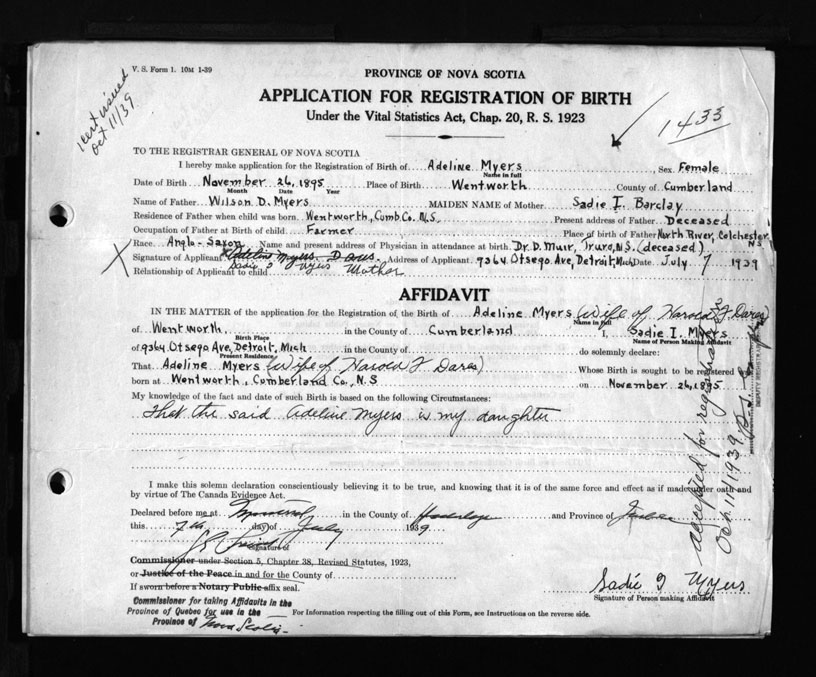 V. S. Form 1. 10M 1-39
1 cert issued
Oct 11/39
PROVINCE OF NOVA SCOTIA
APPLICATION FOR REGISTRATION OF BIRTH
Under the Vital Statistics Act, Chap. 20, R. S. 1923
1433
TO THE REGISTRAR GENERAL OF NOVA SCOTIA
I hereby make application for the Registration of Birth of Adeline Myers, Sex Female
Name in full
Date of Birth November 26, 1895 Place of Birth Wentworth County of Cumberland
Month Date Year
Name of Father Wilson D. Myers MAIDEN NAME of Mother Sadie I. Barclay
Residence of Father when child was born Wentworth, Cumb. Co. N.S. Present address of Father Deceased
Occupation of Father at Birth of child Farmer Place of birth of Father North River, Colchester NS
Race Anglo-Saxon Name and present address of Physician in attendance at birth Dr. D. Muir, Truro, N.S. (deceased)
X Signature of Applicant Adeline Myers Dares Address of Applicant 9364 Otsego Ave, Detroit, Mich Date July 7 1939
Sadie I Myers
Relationship of Applicant to child Mother
AFFIDAVIT
IN THE MATTER of the application for the Registration of the Birth of Adeline Myers (Wife of Harold J. Dares)
Name in full
of Wentworth in the County of Cumberland I, Sadie I. Myers
Birth Place Name of Person Making Affidavit
of 9364 Otsego Ave, Detroit, Mich do solemnly declare:
Present Residence
That Adeline Myers (Wife of Harold J Dares) Whose Birth is sought to be registered was
born at Wentworth, Cumberland Co., N.S on November 26, 1895
My knowledge of the fact and date of such Birth is based on the following Circumstances:
That the said Adeline Myers is my daughter
I make this solemn declaration conscientiously believing it to be true, and knowing that it is of the same force and effect as if made under oath and
by virtue of The Canada Evidence Act.
Declared before me at Montreal in the County of and Province of Quebec
this 7th day of July 1939
Signature of
Commissioner under Section 5, Chapter 38, Revised Statutes, 1923,
or Justice of the Peace in and for the County of
If sworn before a Notary Public affix seal.
Sadie I Myers
Signature of Person making Affidavit
Commissioner for taking Affidavits in the
Province of Quebec for use in the
Province of Nova Scotia
For Information respecting the filling out of this Form, see Instructions on the reverse side.
Accepted for registration
Oct. 11/1939
DEPUTY REGISTRAR